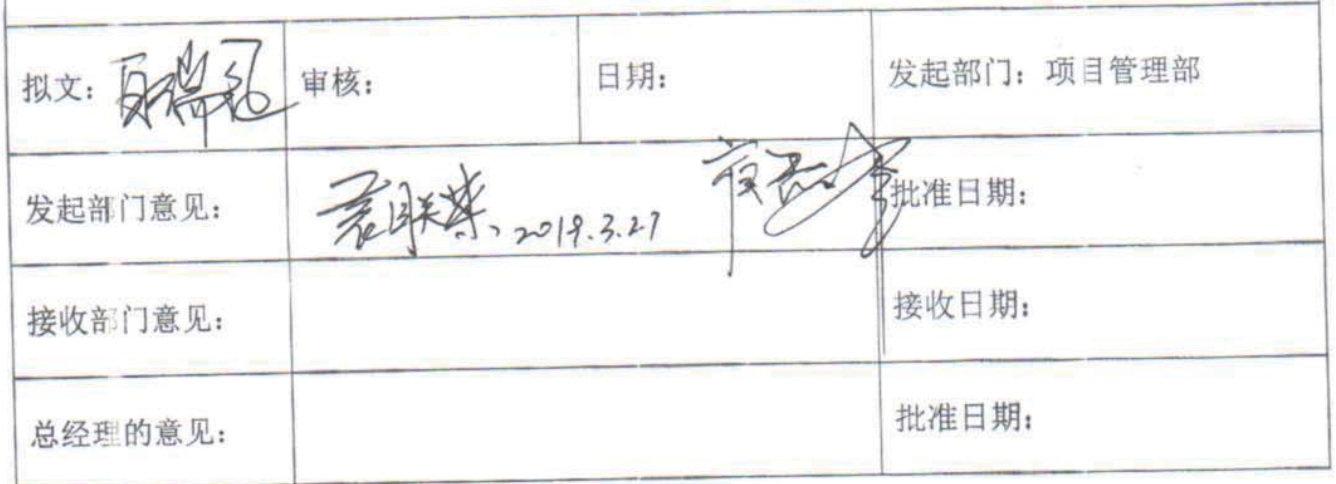 拟文： 审核： 日期： 发起部门：项目管理部
发起部门意见： 袁联荣、2019.3.27 批准日期：
接收部门意见： 接收日期：
总经理的意见： 批准日期：